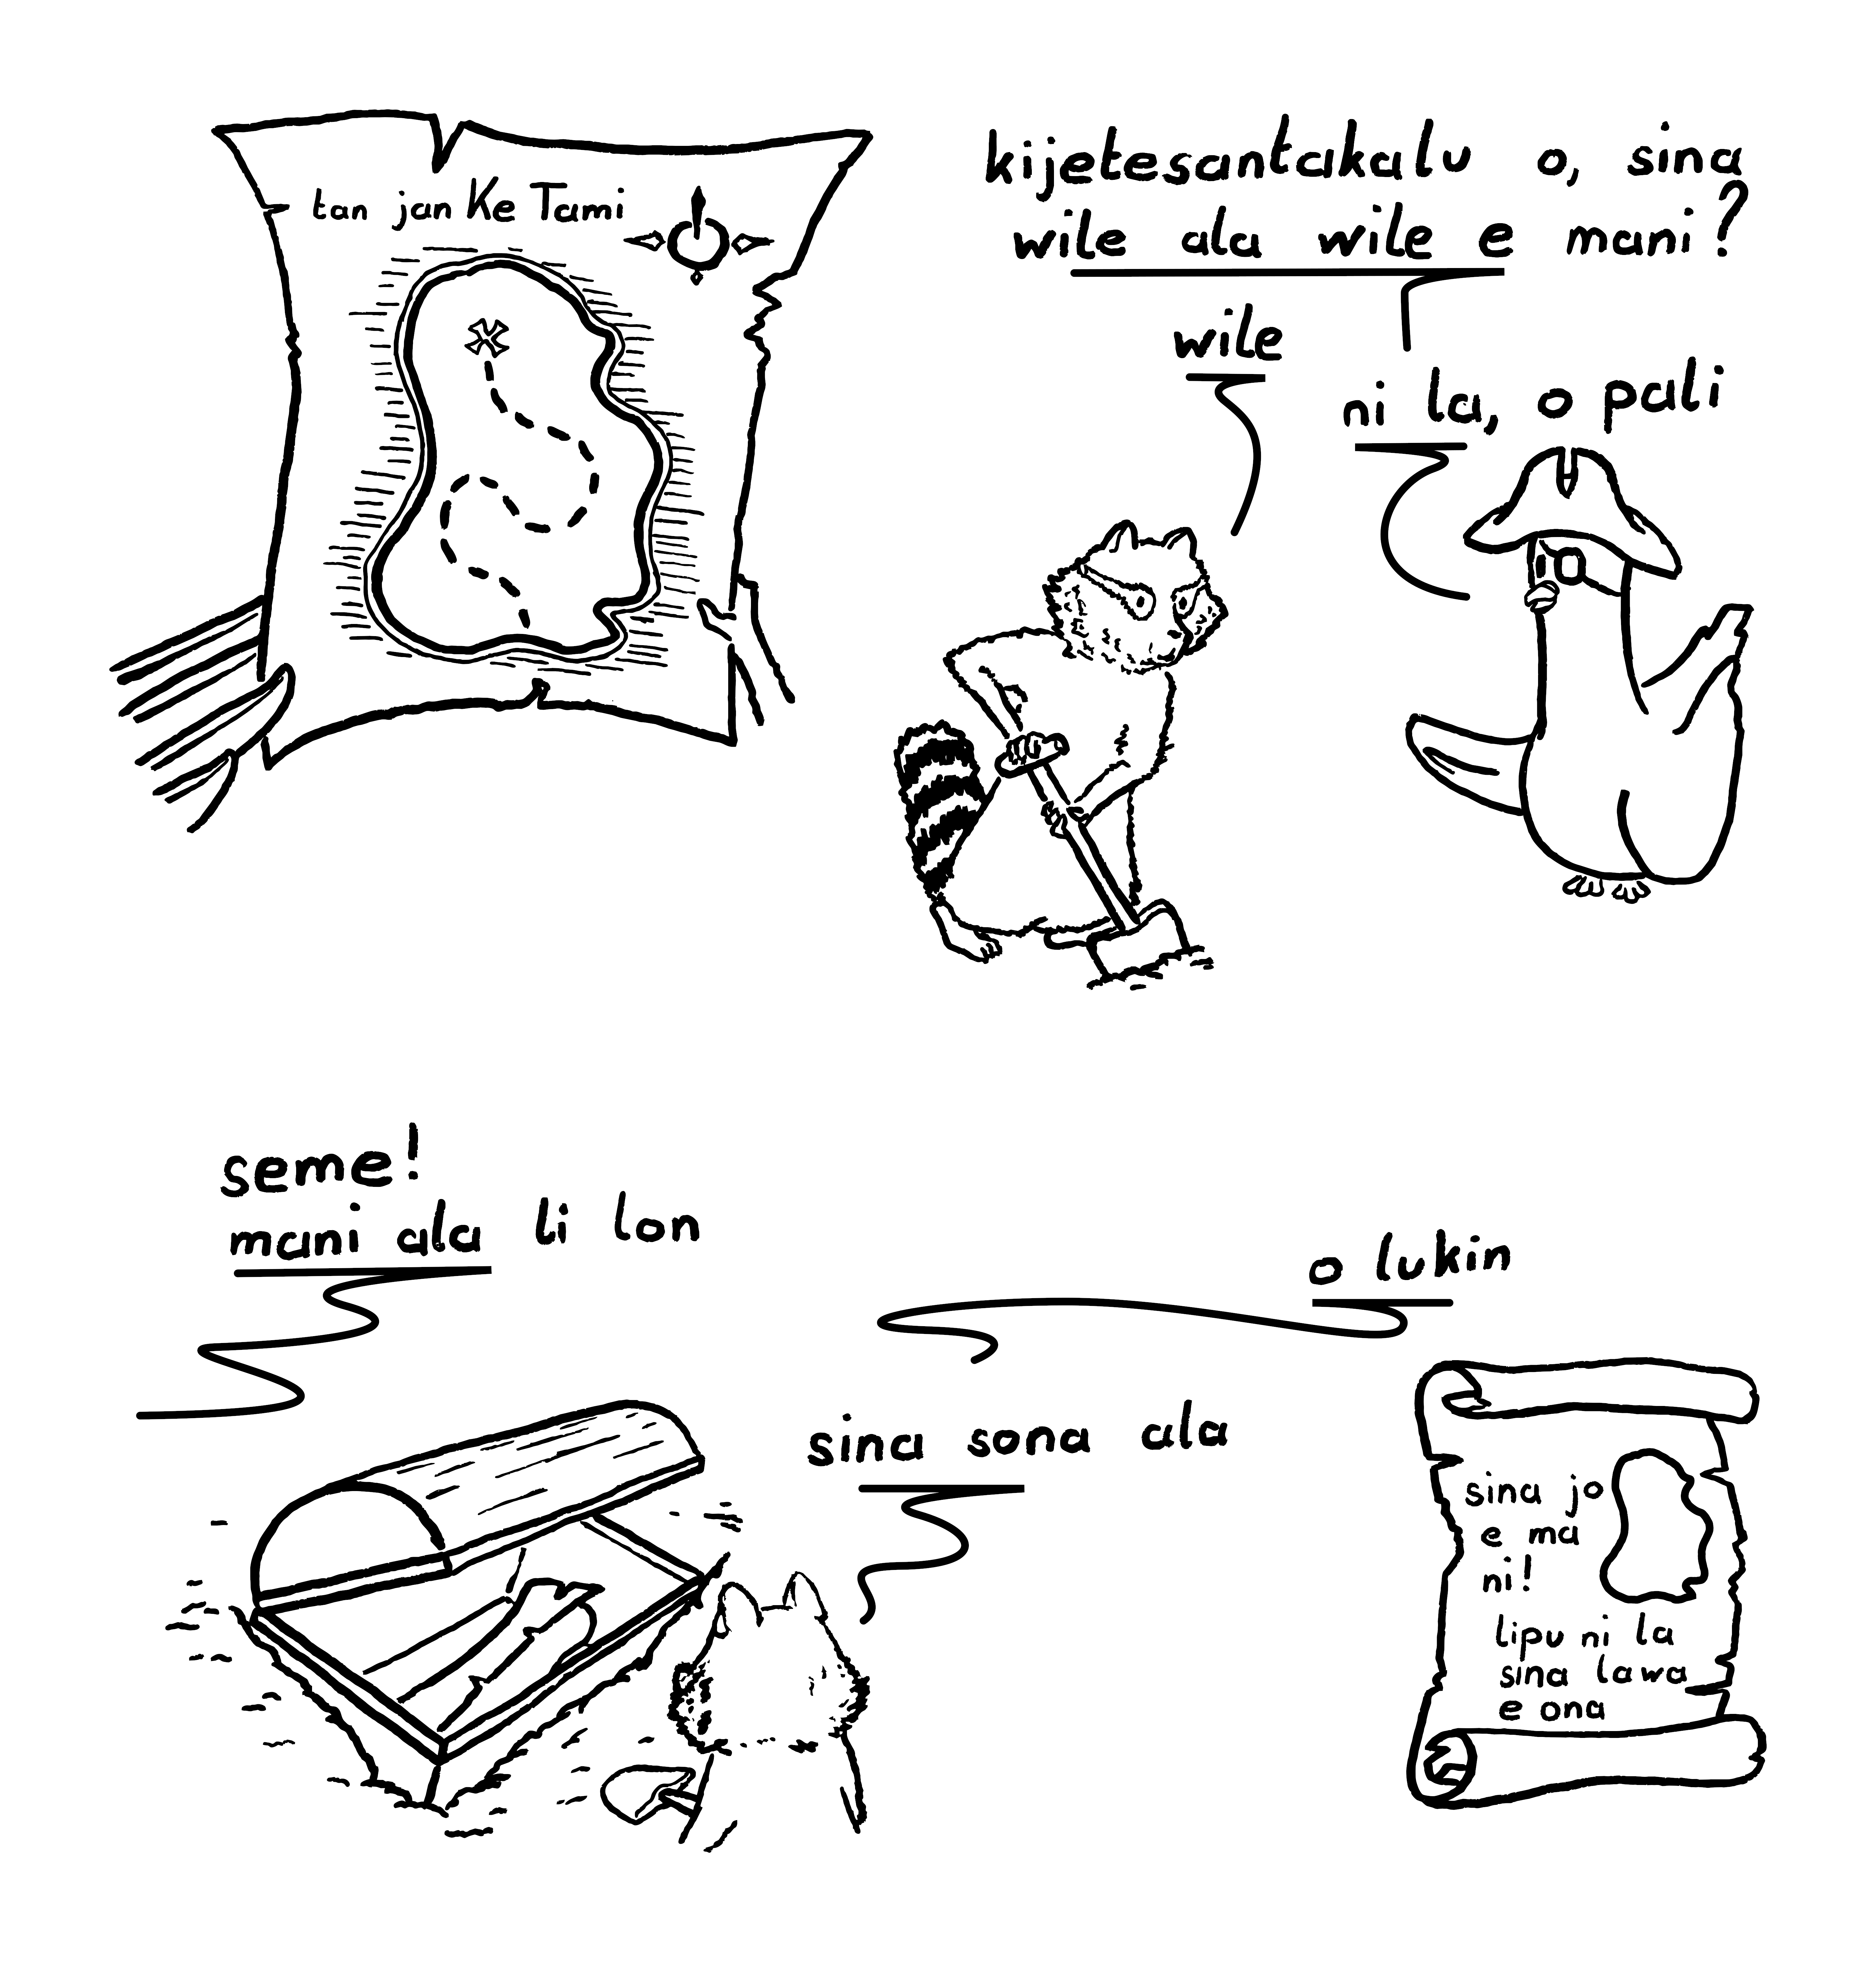 tan jan Ke Tami
kijetesantakalu o, sina
wile ala wile e mani?
wile
ni la, o pali
seme!
mani ala li lon
o lukin
sina sona ala
sina jo
e ma
ni!
lipu ni la
sina lawa
e ona